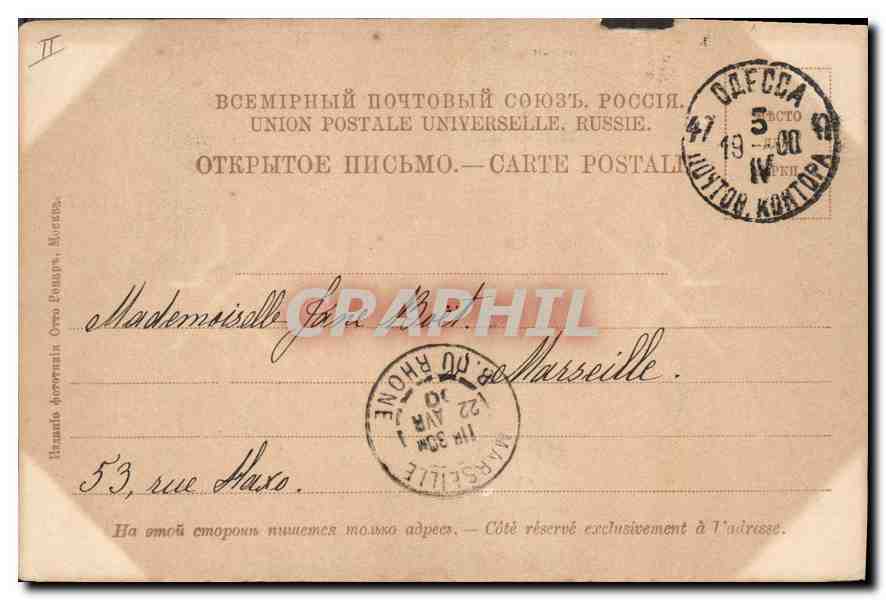 II
ВСЕМІРНЫЙ ПОЧТОВЫЙ СОЮЗЪ. РОССІЯ.
UNION POSTALE UNIVERSELLE. RUSSIE.
ОТКРЫТОЕ ПИСЬМО.—CARTE POSTALE
ОДЕССА
47
5
19 00
IV
ПОЧТОВ. КОНТОРА
Изданіе фототипіи Отто Ренаръ, Москва.
CPARHIL
Mademoiselle Jane Boët.
Marseille.
MARSEILLE
B. DU RHONE
11H 30M
22
AVR
00
53, rue Haxo.
На этой сторонѣ пишется только адресъ. — Côté réservé exclusivement à l'adresse.